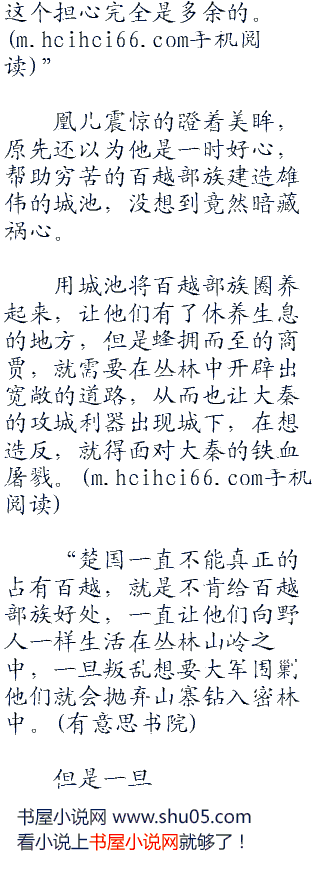 这个担心完全是多余的。
(m.hcihci66.com手机阅
读)”
凰儿震惊的瞪着美眸，
原先还以为他是一时好心，
帮助穷苦的百越部族建造雄
伟的城池，没想到竟然暗藏
祸心。
用城池将百越部族圈养
起来，让他们有了休养生息
的地方，但是蜂拥而至的商
贾，就需要在丛林中开辟出
宽敞的道路，从而也让大秦
的攻城利器出现城下，在想
造反，就得面对大秦的铁血
屠戮。(m.hcihci66.com手机
阅读)
“楚国一直不能真正的
占有百越，就是不肯给百越
部族好处，一直让他们向野
人一样生活在丛林山岭之
中，一旦叛乱想要大军围剿
他们就会抛弃山寨钻入密林
中。(有意思书院)
但是一旦
书屋小说网 www.shu05.com
看小说上书屋小说网就够了！